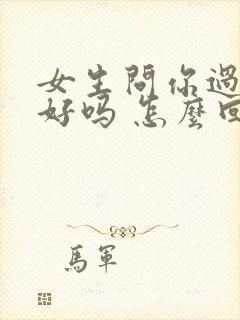 女生問你過
好吗 怎麼回
馬軍